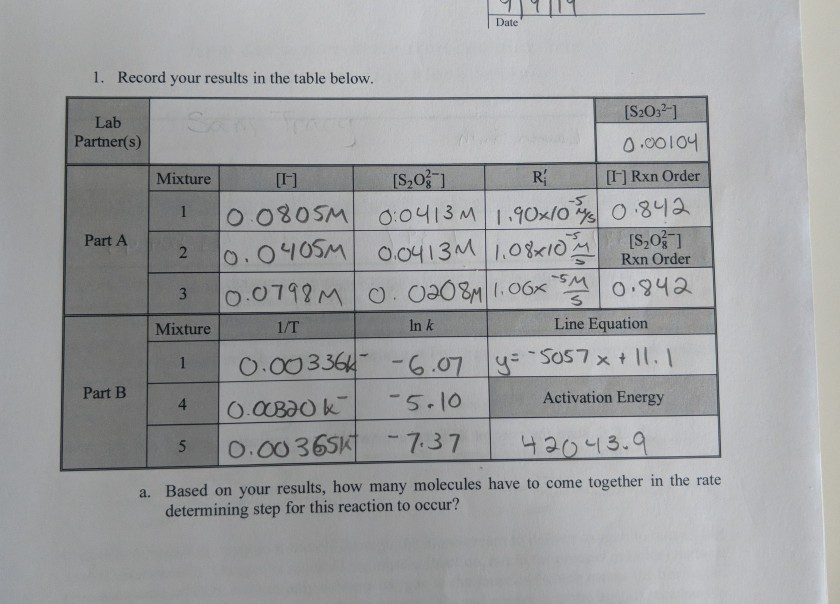 9/9/19
Date
1. Record your results in the table below.
Lab Partner(s) [S₂O₃²⁻]
0.00104
Mixture [I⁻] [S₂O₈²⁻] R′ᵢ [I⁻] Rxn Order
Part A
1 0.0805M 0.0413 M 1.90x10⁻⁵ M/s 0.842
2 0.0405M 0.0413M 1.08x10⁻⁵ M/s [S₂O₈²⁻] Rxn Order
3 0.0798M 0.0208M 1.06x⁻⁵ M/s 0.842
Mixture 1/T ln k Line Equation
Part B
1 0.00336k⁻ -6.07 y= -5057 x + 11.1
4 0.00320 k⁻ -5.10 Activation Energy
5 0.00365K⁻ -7.37 42043.9
a. Based on your results, how many molecules have to come together in the rate
determining step for this reaction to occur?